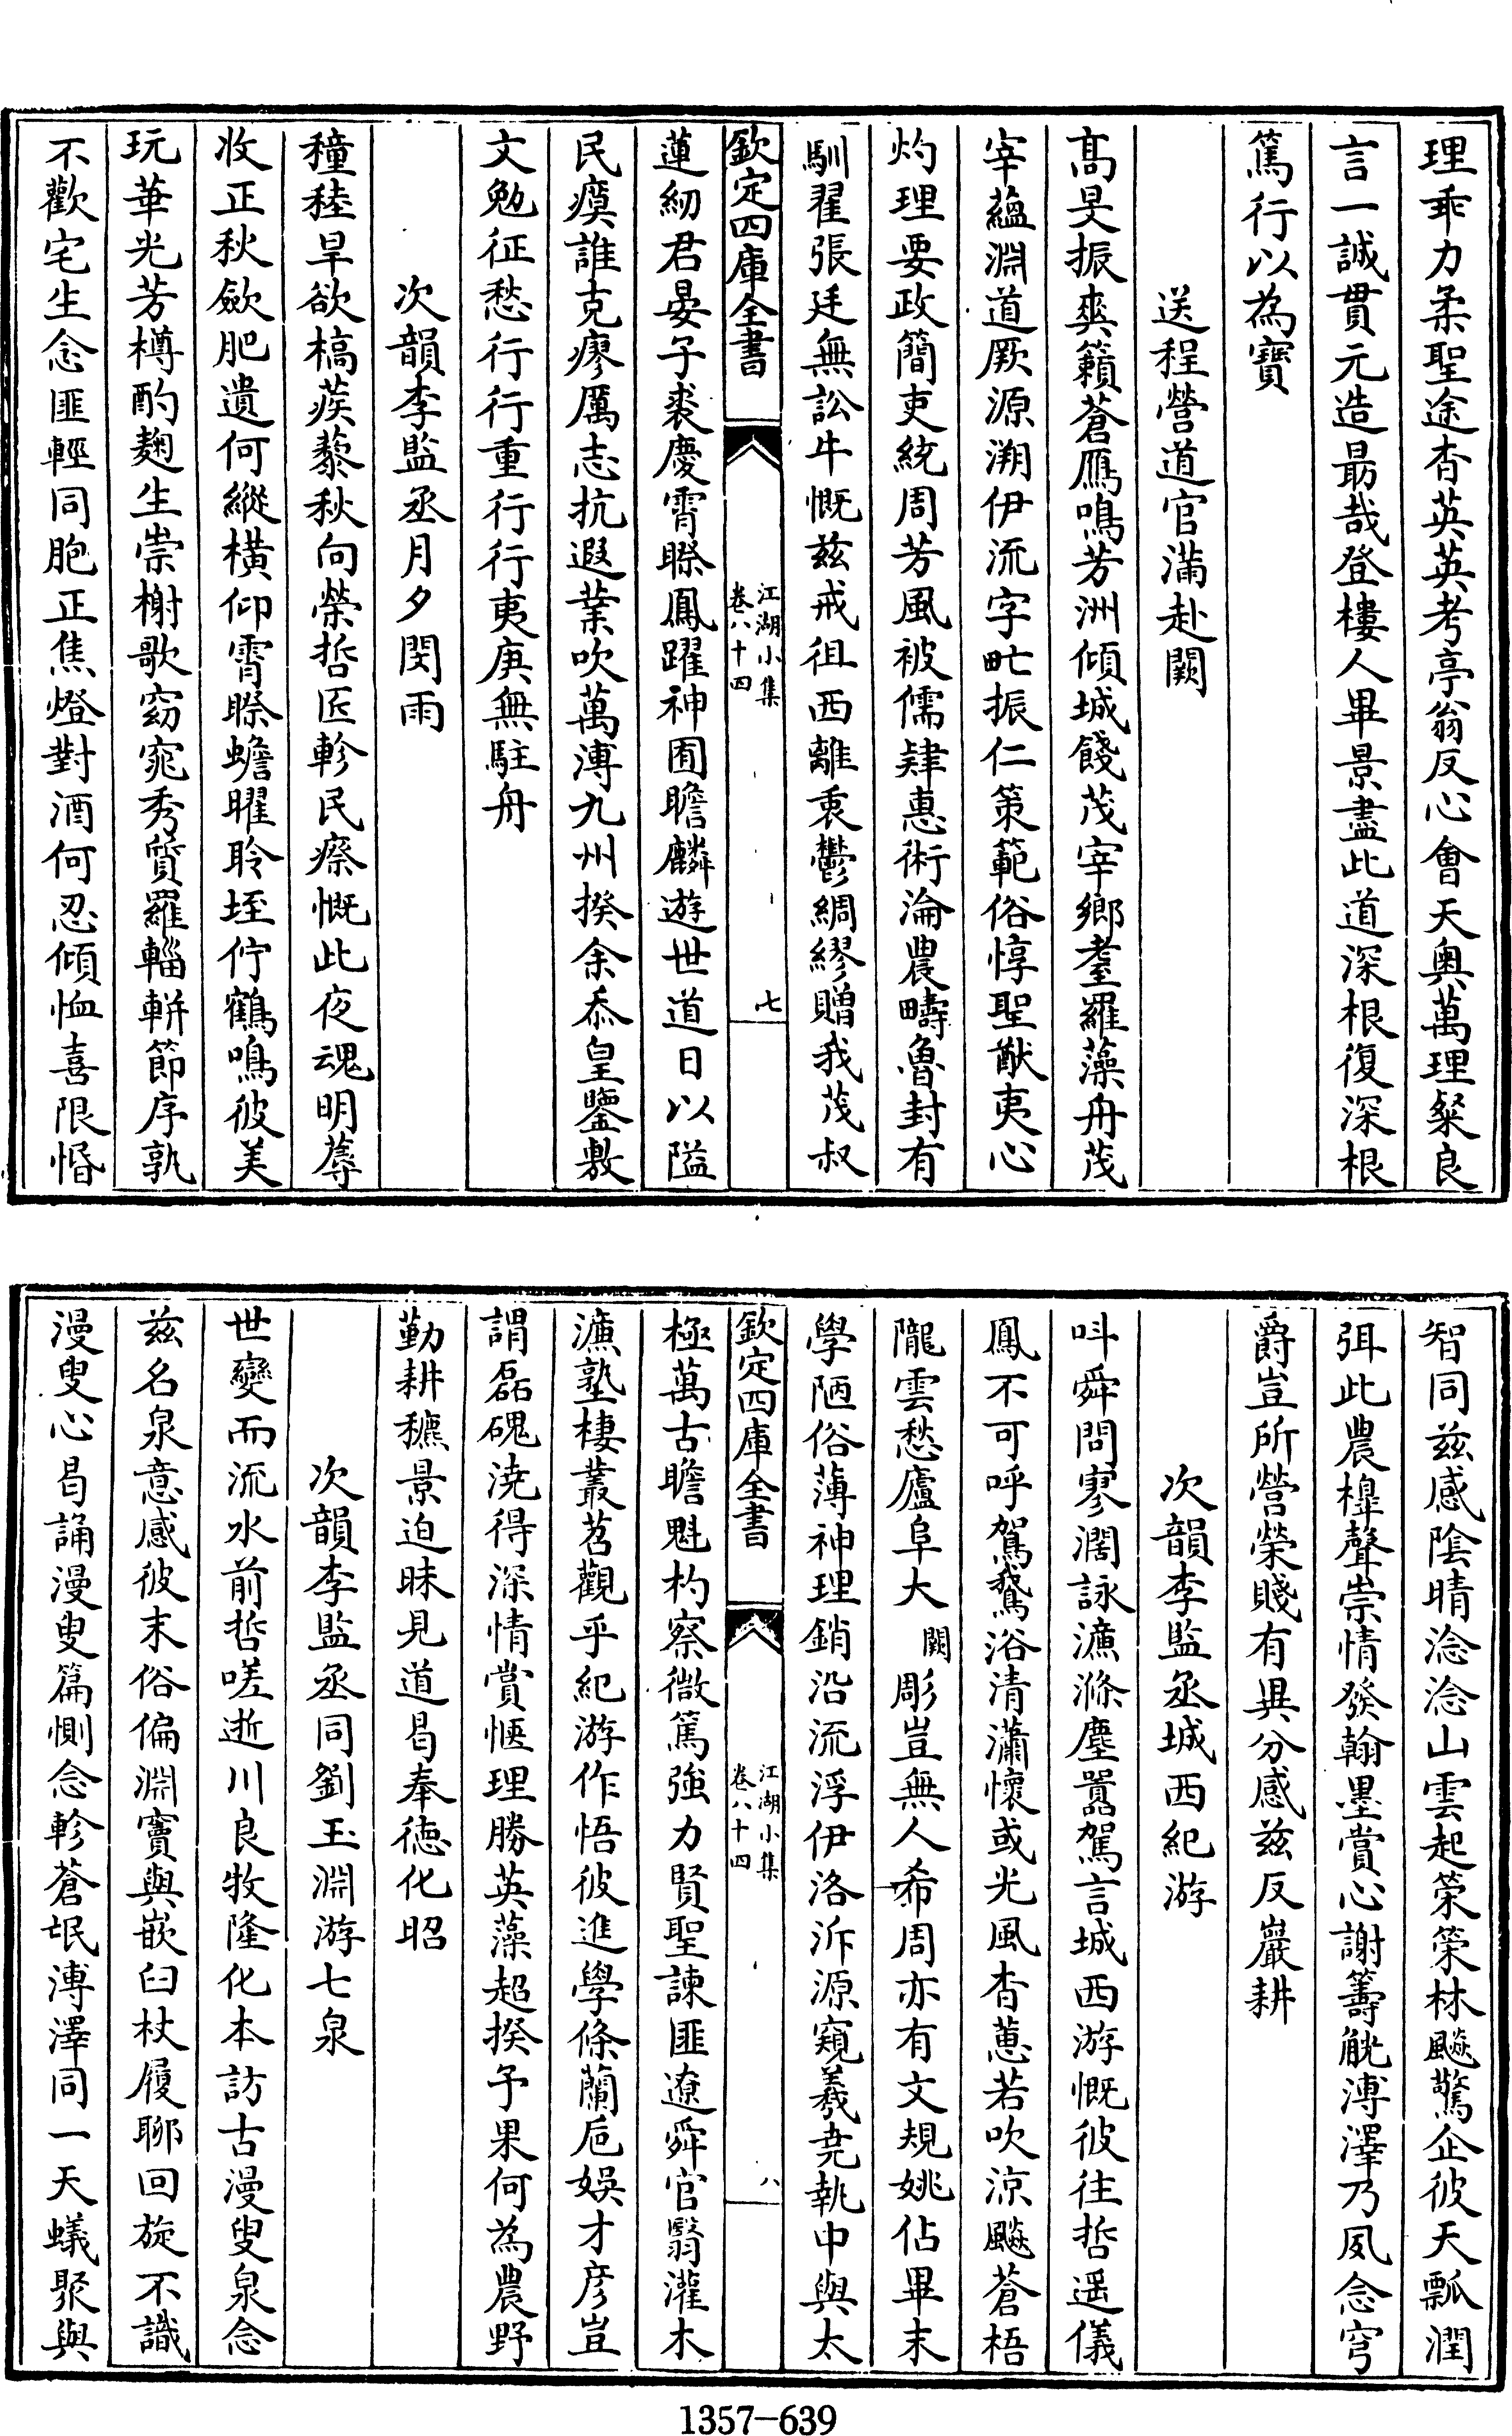 理乖力柔聖途杳英英考亭翁反心會天奧萬理粲良
言一誠貫元造最哉登樓人畢景盡此道深根復深根
篤行以為寶
送程營道官滿赴闕
髙旻振爽籟蒼鴈鳴芳洲傾城餞茂宰鄉耋羅藻舟茂
宰藴淵道厥源溯伊流字甿振仁策範俗惇聖猷夷心
灼理要政簡吏統周芳風被儒肄惠術淪農疇魯封有
馴翟張廷無訟牛慨兹戒徂西離衷鬱綢繆贈我茂叔
欽定四庫全書
江湖小集
卷八十四
七
蓮紉君晏子裘慶霄睽鳳躍神囿瞻麟遊世道日以隘
民瘼誰克瘳厲志抗遐業吹萬溥九州揆余忝皇鑒敷
文勉征愁行行重行行夷庚無駐舟
次韻李監丞月夕閔雨
穜稑旱欲槁蒺藜秋向榮哲匠軫民瘵慨此夜魂明蓐
收正秋斂肥遺何縱橫仰霄睽蟾曜聆垤佇鶴鳴彼美
玩華光芳樽酌麴生崇榭歌窈窕秀質羅輜軿節序孰
不歡宅生念匪輕同胞正焦燈對酒何忍傾恤喜限惛
智同兹感陰晴淰淰山雲起榮榮林飇驚企彼天瓢潤
弭此農槔聲崇情發翰墨賞心謝籌觥溥澤乃夙念穹
爵豈所營榮賤有異分感兹反巖耕
次韻李監丞城西紀游
呌舜問寥濶詠濂滌塵囂駕言城西游慨彼往哲遥儀
鳳不可呼駕鵞浴清瀟懷或光風杳蕙若吹涼飇蒼梧
隴雲愁廬阜大
闕
彫豈無人希周亦有文規姚佔畢末
學陋俗薄神理銷沿流浮伊洛泝源窺羲堯執中與太
欽定四庫全書
江湖小集
卷八十四
八
極萬古瞻魁杓察微篤強力賢聖諫匪遼舜官翳灌木
濂塾棲叢苕觀乎紀游作悟彼進學條蘭卮娛才彦豈
謂磊磈澆得深情賞愜理勝英藻超揆予果何為農野
勤耕穮景迫昧見道曷奉徳化昭
次韻李監丞同劉玉淵游七泉
世變而流水前哲嗟逝川良牧隆化本訪古漫叟泉念
兹名泉意感彼末俗偏淵竇與嵌臼杖履聊回旋不識
漫叟心曷誦漫叟篇惻念軫蒼氓溥澤同一天蟻聚與
1357-639